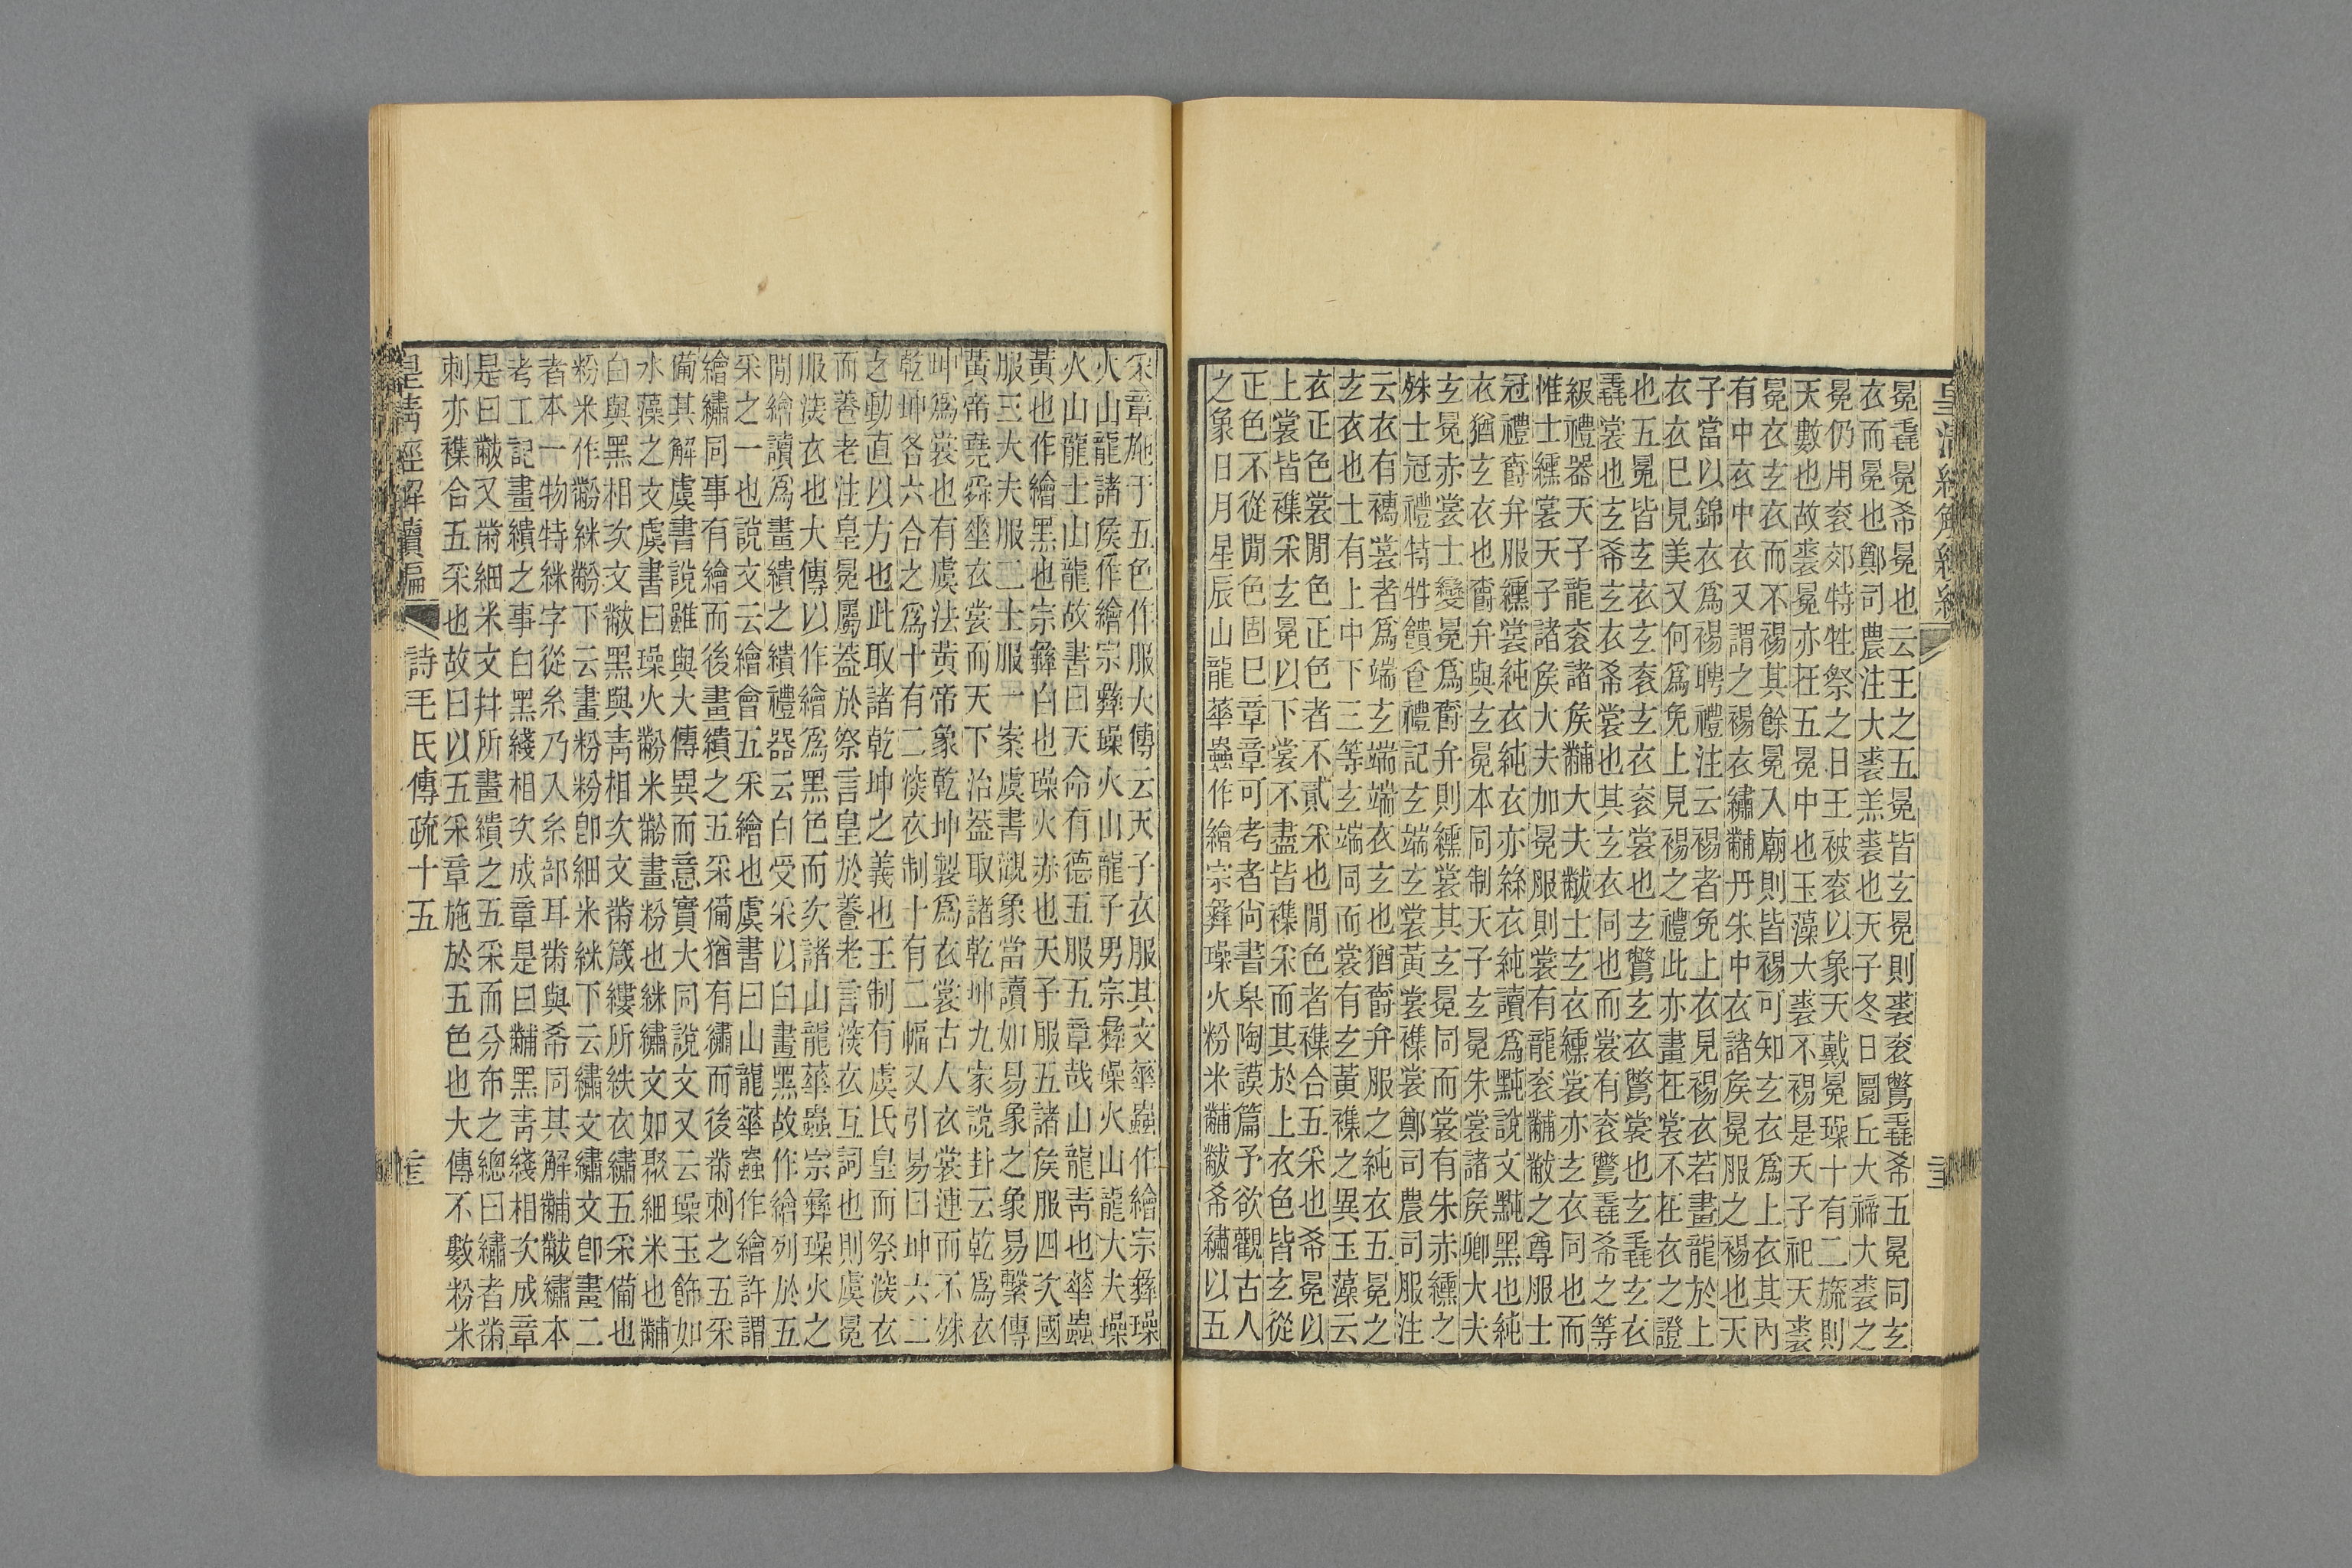 皇清經解續編
冕毳冕希冕也云王之五冕皆玄冕則裘衮鷩毳希五冕同玄
衣而冕也鄭司農注大裘羔裘也天子冬日圜丘大禘大裘之
冕仍用衮郊特牲祭之日王被衮以象天戴冕璪十有二旒則
天數也故裘冕亦在五冕中也玉藻大裘不裼是天子祀天裘
冕衣玄衣而不裼其餘冕入廟則皆裼可知玄衣爲上衣其內
有中衣中衣又謂之裼衣繡黼丹朱中衣諸矦冕服之裼也天
子當以錦衣爲裼聘禮注云裼者免上衣見裼衣若畫龍於上
衣衣巳見美又何爲免上見裼之禮此亦畫在裳不在衣之證
也五冕皆玄衣玄衮玄衣衮裳也玄鷩玄衣鷩裳也玄毳玄衣
毳裳也玄希玄衣希裳也其玄衣同也而裳有衮鷩毳希之等
級禮器天子龍衮諸矦黼大夫黻士玄衣纁裳亦玄衣同也而
惟士纁裳天子諸矦大夫加冕服則裳有龍衮黼黻之尊服士
冠禮爵弁服纁裳純衣純衣亦絲衣純讀爲黗說文黗黑也純
衣猶玄衣也爵弁與玄冕本同制天子玄冕朱裳諸矦卿大夫
玄冕赤裳士變冕爲爵弁則纁裳其玄冕同而裳有朱赤纁之
殊士冠禮特牲饋食禮記玄端玄裳黃裳襍裳鄭司農司服注
云衣有襦裳者爲端玄端端衣玄也猶爵弁服之純衣五冕之
玄衣也士有上中下三等玄端同而裳有玄黃襍之異玉藻云
衣正色裳閒色正色者不貳采也閒色者襍合五采也希冕以
上裳皆襍采玄冕以下裳不盡皆襍采而其於上衣色皆玄從
正色不從閒色固巳章章可考者尙書皋陶謨篇予欲觀古人
之象日月星辰山龍華蟲作繪宗彝璪火粉米黼黻希繡以五
采章施于五色作服大傳云天子衣服其文華蟲作繪宗彝璪
火山龍諸矦作繪宗彝璪火山龍子男宗彝璪火山龍大夫璪
火山龍士山龍故書曰天命有德五服五章哉山龍靑也華蟲
黃也作繪黑也宗彝白也璪火赤也天子服五諸矦服四次國
服三大夫服二士服一案虞書觀象當讀如易象之象易繫傳
黃帝堯舜垂衣裳而天下治葢取諸乾坤九家說卦云乾爲衣
坤爲裳也有虞法黃帝象乾坤製爲衣裳古人衣裳連而不殊
乾坤各六合之爲十有二㴱衣制十有二幅又引易曰坤六二
之動直以方也此取諸乾坤之義也王制有虞氏皇而祭㴱衣
而養老注皇冕屬葢於祭言皇於養老言㴱衣互詞也則虞冕
服㴱衣也大傳以作繪爲黑色而次諸山龍華蟲宗彝璪火之
閒繪讀爲畫繢之繢禮器云白受采以白畫黑故作繪列於五
采之一也說文云繪會五采繪也虞書曰山龍華蟲作繪許謂
繪繡同事有繪而後畫繢之五采備猶有繡而後黹刺之五采
備其解虞書說雖與大傳異而意實大同說文又云璪玉飾如
水藻之文虞書曰璪火黺米黺畫粉也䋛繡文如聚細米也黼
白與黑相次文黻黑與靑相次文黹箴縷所紩衣繡五采備也
粉米作黺䋛黺下云畫粉粉卽細米䋛下云繡文繡文卽畫二
者本一物特䋛字從糸乃入糸部耳黹與希同其解黼黻繡本
考工記畫繢之事白黑綫相次成章是曰黼黑靑綫相次成章
是曰黻又黹細米文幷所畫繢之五采而分布之總曰繡者黹
刺亦襍合五采也故曰以五采章施於五色也大傳不數粉米
皇清經解續編 詩毛氏傳疏十五